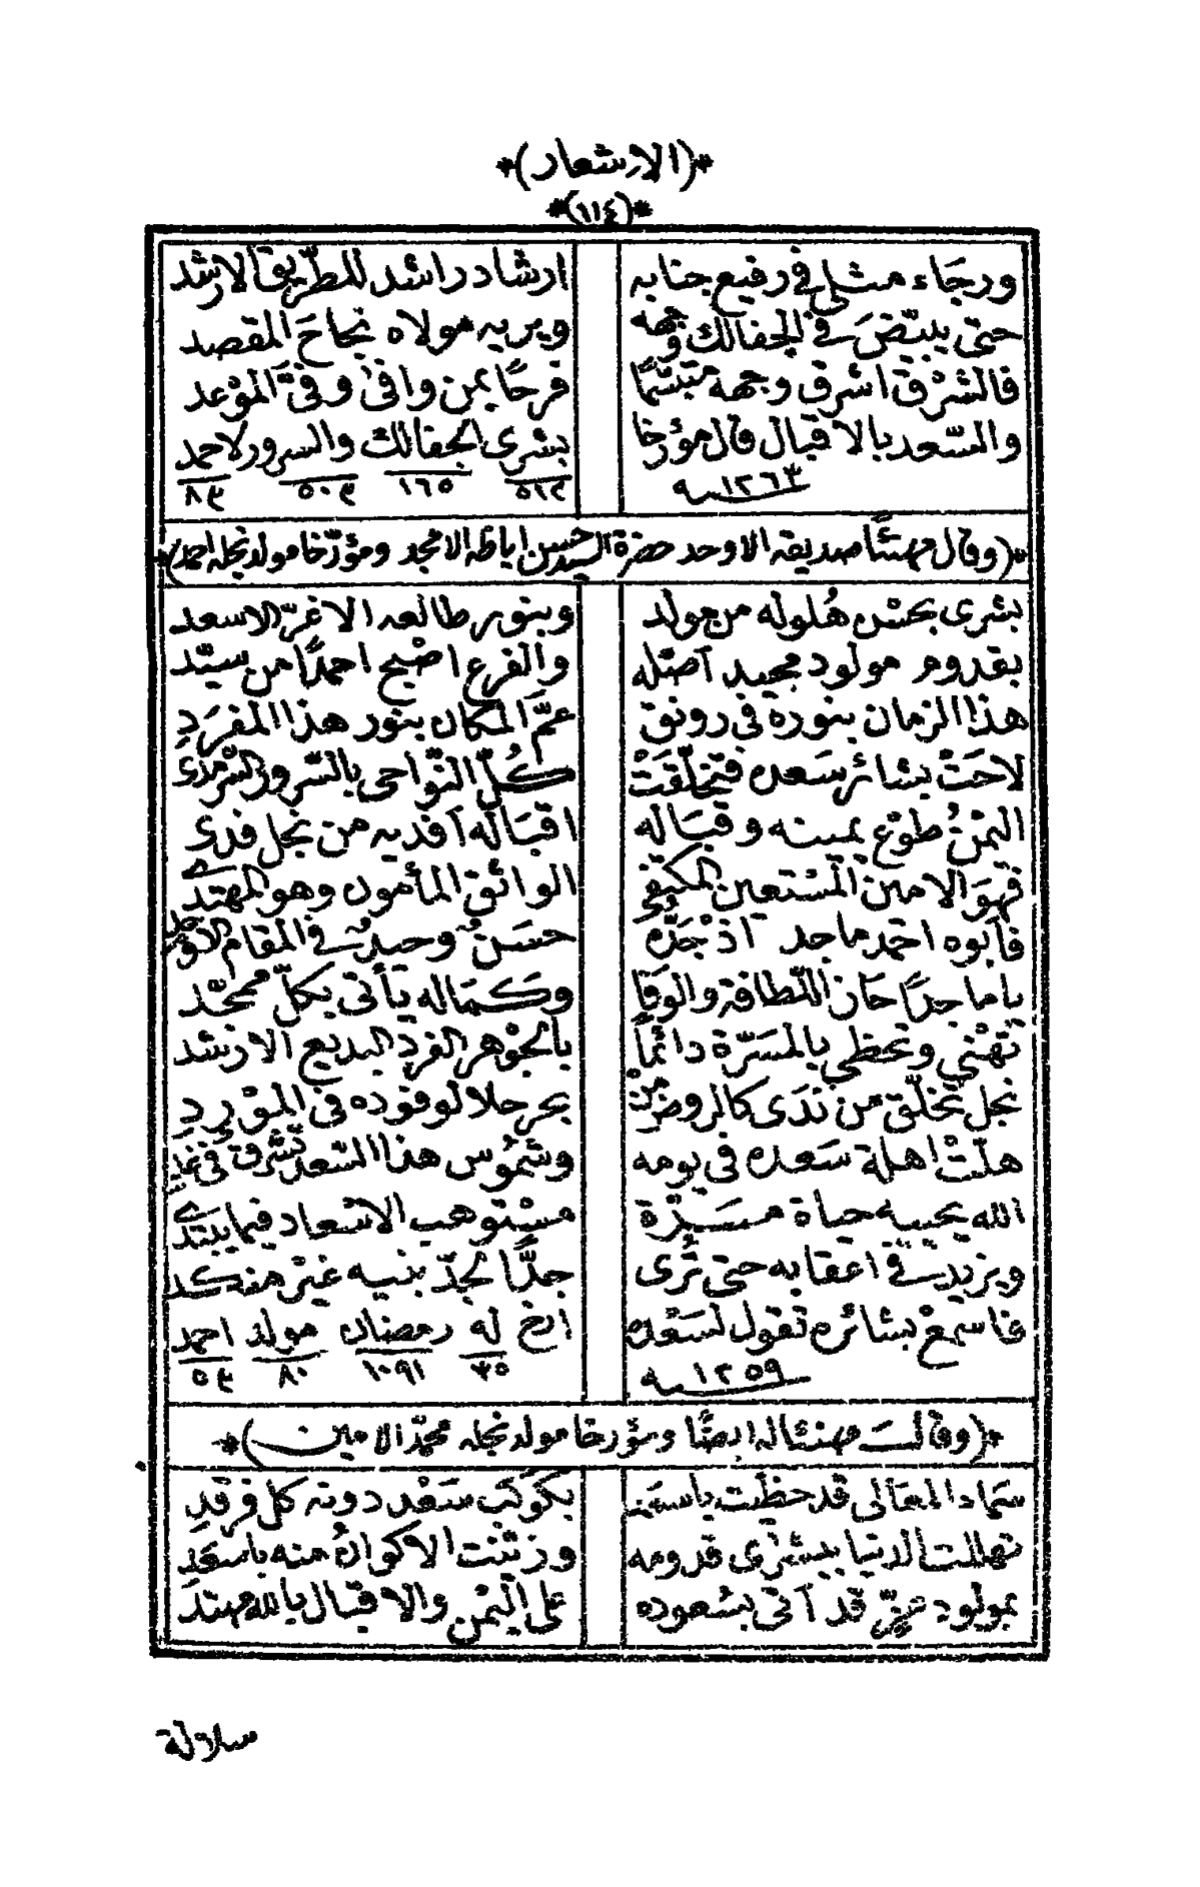 *(الاشعار)*
*(١١٤)*
ورجَاء مثلي في رفيع جنابه ارشاد راشد للطريق الارشد
حتى يبيّضَ في الجفالك وجهه ويريه مولاه نجاحَ المقصد
فالشرْق اشرق وجهه متبسّمًا فرحًا بمن وافى وفىَّ الموْعد
والسّعد بالاقبال قال مؤرخا بشرى الجفالك والسرور لاحمد
١٢٦٣سنه ٥١٢ ١٦٥ ٥٠٣ ٨٣
*(وقال مهنئًا صديقه الاوحد حضرة السيد حسن اباظه الامجد ومؤرّخا مولد نجله احمد)*
بشرى بحسْن هُلوله من مولد وبنور طالعه الاغرّ الاسعد
بقدوم مولود مجيد اصْله والفرع اضْحى احمدًا من سيّد
هذا الزمان بنوره في رونق عمَّ المكان بنور هذا المفرَدِ
لاحَتْ بشائر سَعده فتخلّقتْ كُلّ النّواحى بالسّرور السّرْمدى
اليمْنُ طوْع يمينه وقبَاله اقبَاله افديه من نجل فدى
فهوَ الامين المسْتعين المكتفى الواثق المأمون وهو المهتدى
فابوه احمد ماجد اذْ جَدّه حسَنٌ وحيدٌ في المقام الاوحد
ياماجدًا حَاز اللّطافة والوفا وكَمَاله يأتى بكلّ ممجّد
تهْنى وتحظى بالمسَرّة دائمًا بالجوْهر الفردِ البديع الارشد
نجل تخلّق من ندَى كالروض منْ بحر حلا لوفوده في الموْردِ
هلّتْ اهلة سَعده في يومه وشمُوس هذا السّعد تشرق في غد
الله يحييه حياة مسَرّة مسْتوهب الاسْعاد فيما يبتدى
ويزيد في اعقابه حتى تُرى جدًّا لجدّ بنيه غيْر منكد
فاسمعْ بشائره تقول لسَعْده ارخ له رمضان مولد احمد
١٢٥٩سنه ٣٥ ١٠٩١ ٨٠ ٥٣
*(وقال مهنئا له ايضًا ومؤرخا مولد نجله محمّد الامين)*
سماء المعَالى قد حظيت باسعد بكوكب سَعْد دونه كل فرقدِ
تهللت الدنيا ببشرى قدومه وزيّنت الاكوانُ منه باسعَد
بمولود عزّ قد اتى بسُعوده على اليمْن والاقبال بالله مهتدَ
سلالة